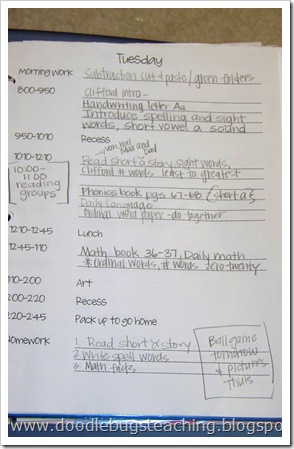 Tuesday
Morning work Subtraction cut & paste/green folders
8:00-9:50 Clifford intro-
Handwriting letter Aa
Introduce spelling and sight
words, short vowel a sound
9:50-10:10 Recess
Dad
10:10-12:10 Read short a story, sight words,
Clifford # words least to greatest
10:00-
11:00
reading
groups
Phonics book pgs 67-68 (short a)
Daily Language
Animal word paper - do together
12:10-12:45 Lunch
12:45-1:10 Math book 36-37, Daily math
* ordinal words, # words zero-twenty
1:10-2:00 Art
2:00-2:20 Recess
2:20-2:45 Pack up to go home
Homework 1. Read short a story
2. Write spell words
3. Math facts
Ballgame
tomorrow
* pictures
Thurs
www.doodlebugsteaching.blogspo